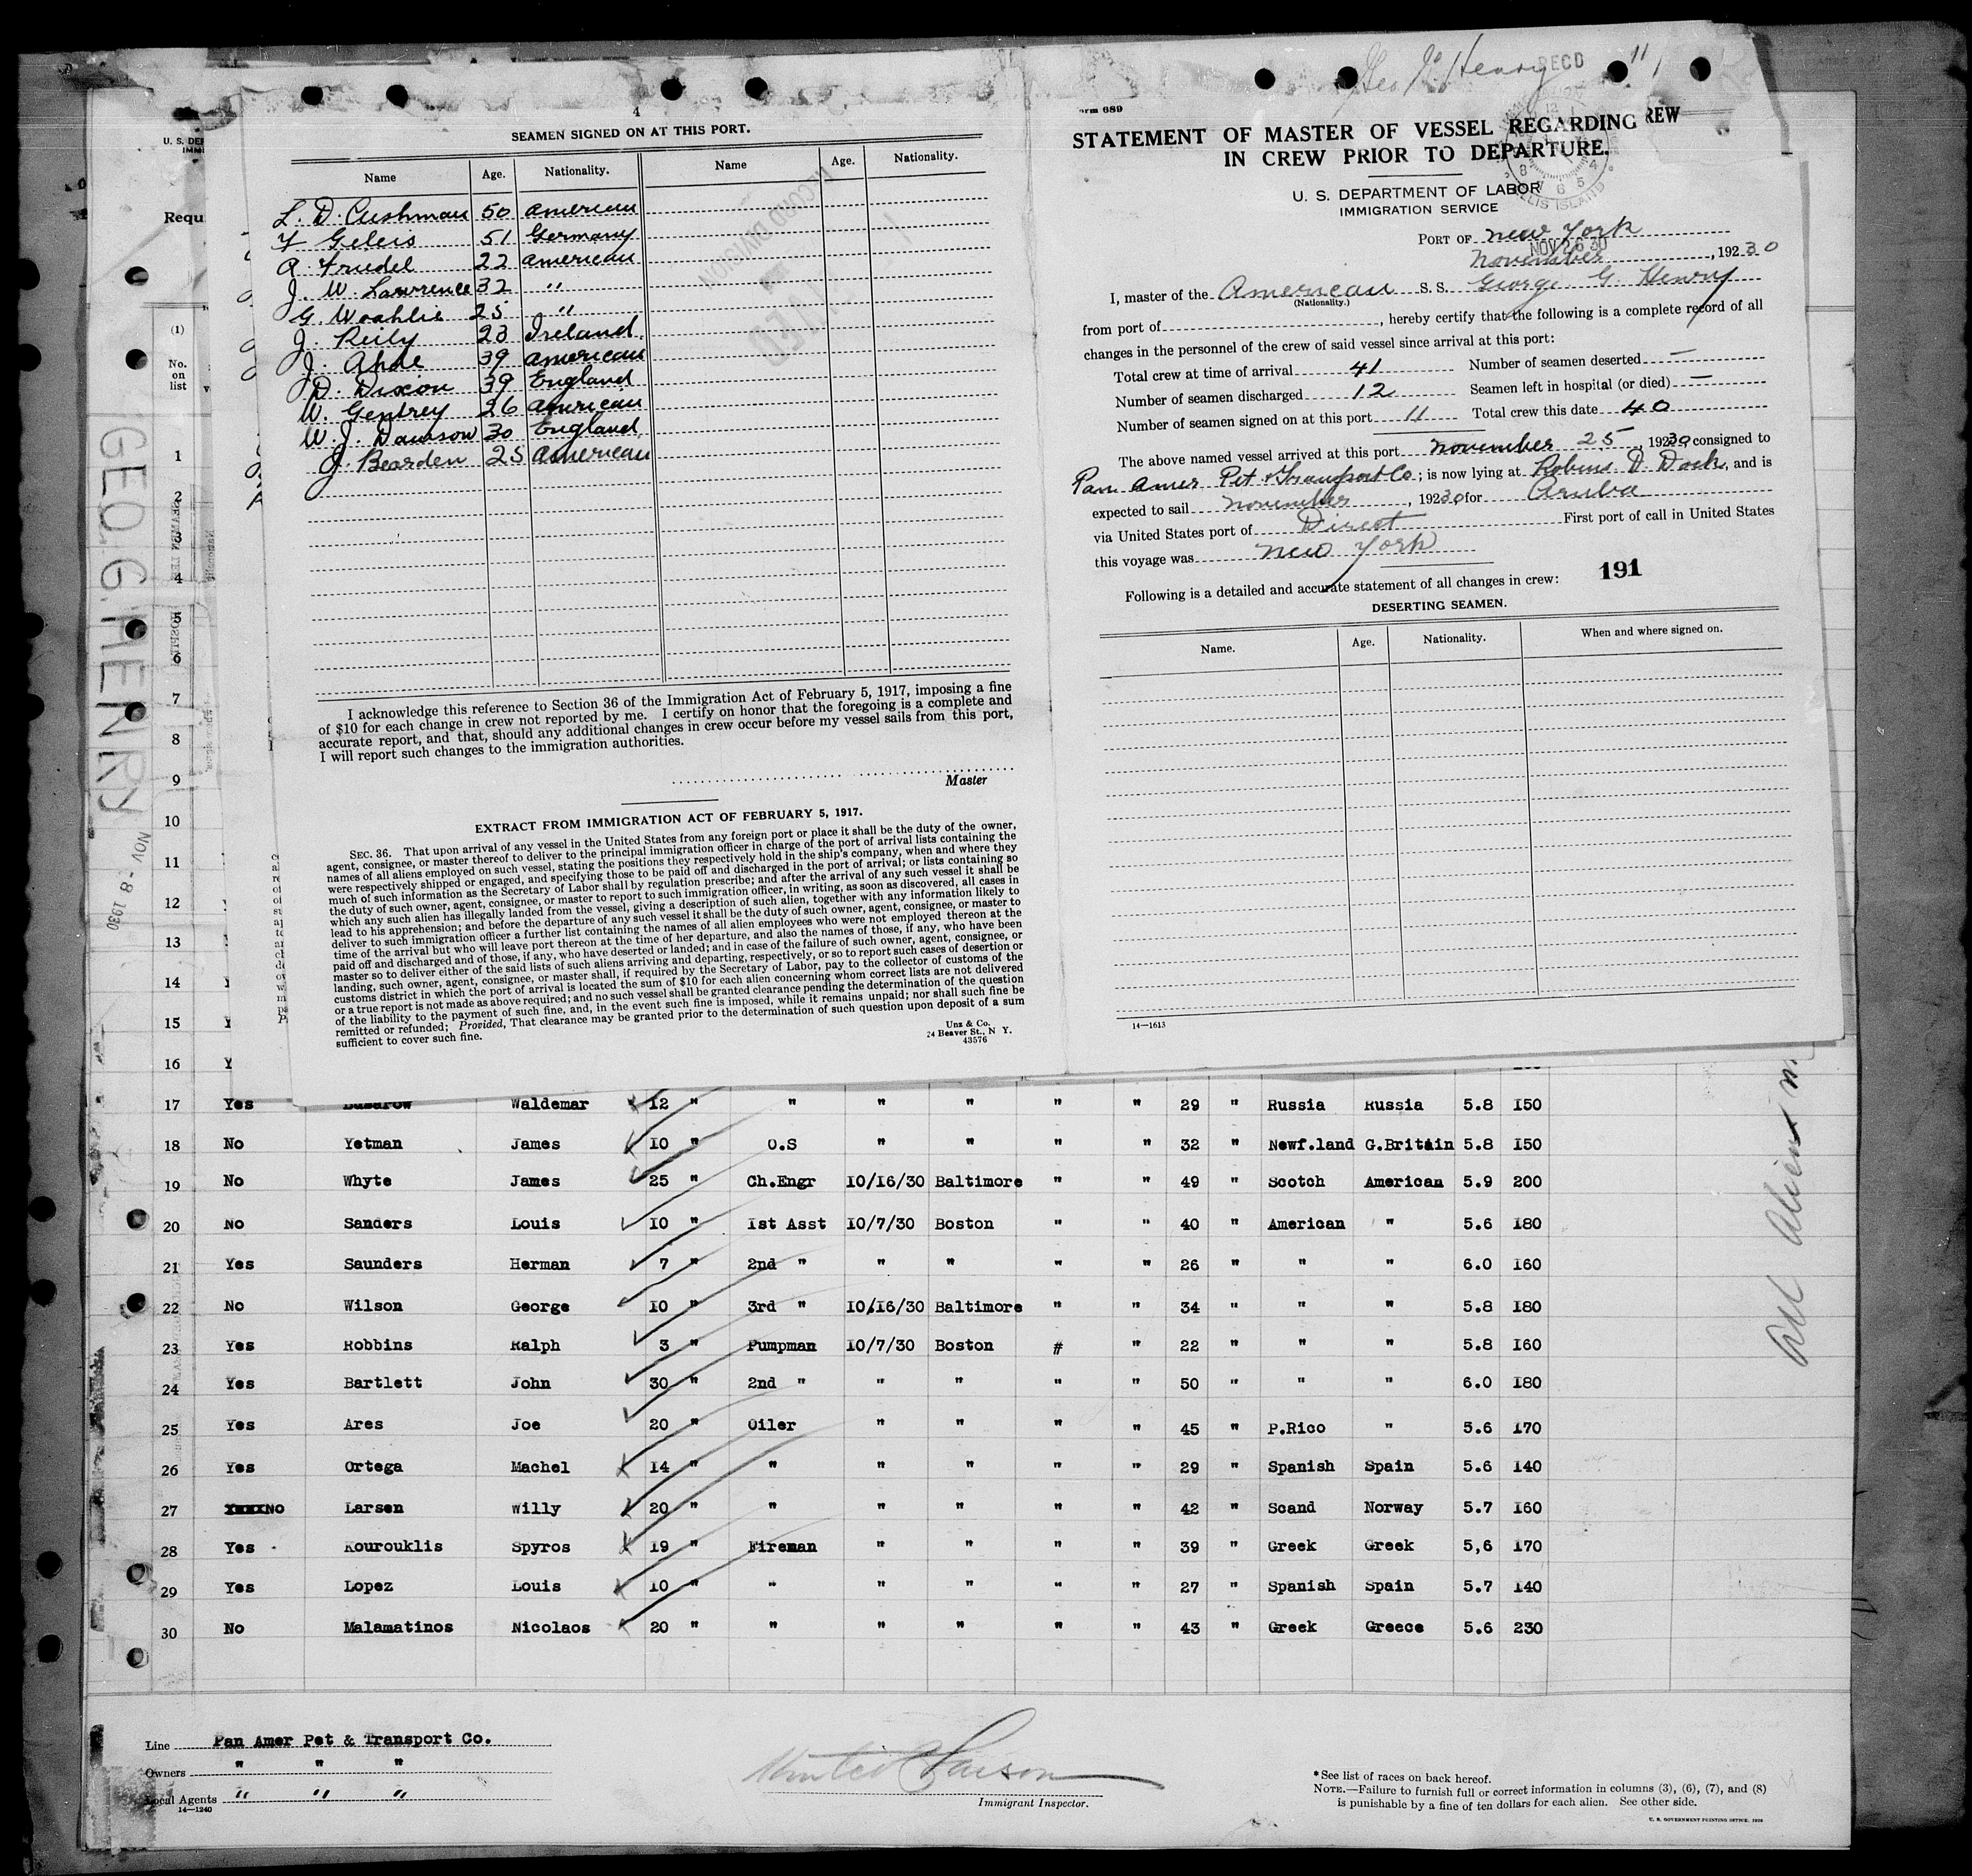 4
SEAMEN SIGNED ON AT THIS PORT.
Name Age. Nationality. Name Age. Nationality.
L. D. Cushman 50 American
51 Germany
A. Trudel 22 American
J. W. Lawrence 32 "
G. 25 "
J. Reily 23 Ireland
J. 39 American
D. Dixon 39 England
W. Gentrey 26 American
W. J. Dawson 30 England
J. Bearden 25 American
I acknowledge this reference to Section 36 of the Immigration Act of February 5, 1917, imposing a fine
of $10 for each change in crew not reported by me. I certify on honor that the foregoing is a complete and
accurate report, and that, should any additional changes in crew occur before my vessel sails from this port,
I will report such changes to the immigration authorities.
Master
EXTRACT FROM IMMIGRATION ACT OF FEBRUARY 5, 1917.
SEC. 36. That upon arrival of any vessel in the United States from any foreign port or place it shall be the duty of the owner,
agent, consignee, or master thereof to deliver to the principal immigration officer in charge of the port of arrival lists containing the
names of all aliens employed on such vessel, stating the positions they respectively hold in the ship's company, when and where they
were respectively shipped or engaged, and specifying those to be paid off and discharged in the port of arrival; or lists containing so
much of such information as the Secretary of Labor shall by regulation prescribe; and after the arrival of any such vessel it shall be
the duty of such owner, agent, consignee, or master to report to such immigration officer, in writing, as soon as discovered, all cases in
which any such alien has illegally landed from the vessel, giving a description of such alien, together with any information likely to
lead to his apprehension; and before the departure of any such vessel it shall be the duty of such owner, agent, consignee, or master to
deliver to such immigration officer a further list containing the names of all alien employees who were not employed thereon at the
time of the arrival but who will leave port thereon at the time of her departure, and also the names of those, if any, who have been
paid off and discharged and of those, if any, who have deserted or landed; and in case of the failure of such owner, agent, consignee, or
master so to deliver either of the said lists of such aliens arriving and departing, respectively, or so to report such cases of desertion or
landing, such owner, agent, consignee, or master shall, if required by the Secretary of Labor, pay to the collector of customs of the
customs district in which the port of arrival is located the sum of $10 for each alien concerning whom correct lists are not delivered
or a true report is not made as above required; and no such vessel shall be granted clearance pending the determination of the question
of the liability to the payment of such fine, and, in the event such fine is imposed, while it remains unpaid; nor shall such fine be
remitted or refunded; Provided, That clearance may be granted prior to the determination of such question upon deposit of a sum
sufficient to cover such fine.
Unz & Co.
24 Beaver St., N Y.
43576
Geo G. Henry
RECD
689
STATEMENT OF MASTER OF VESSEL REGARDING REW
IN CREW PRIOR TO DEPARTURE.
U. S. DEPARTMENT OF LABOR
IMMIGRATION SERVICE
PORT OF New York
NOV 26 30
November, 1930
I, master of the American S. S. George G. Henry
(Nationality.)
from port of, hereby certify that the following is a complete record of all
changes in the personnel of the crew of said vessel since arrival at this port:
Total crew at time of arrival 41 Number of seamen deserted —
Number of seamen discharged 12 Seamen left in hospital (or died) —
Number of seamen signed on at this port 11 Total crew this date 40
The above named vessel arrived at this port November 25, 1930 consigned to
Pam Amer Pet & Transport Co; is now lying at Robins D. Dock, and is
expected to sail November, 1930 for Aruba
via United States port of Direct First port of call in United States
this voyage was New York
191
Following is a detailed and accurate statement of all changes in crew:
DESERTING SEAMEN.
Name. Age. Nationality. When and where signed on.
14—1613
U. S. DEP
IMMI
Requ
(1)
No.
on
list
GEO.G.HENRY
NOV -8 1930
1
2
3
4
5
6
7
8
9
10
11
12
13
14 Y
15 Y
16 Y
17 Yes Waldemar 12 " " " " " " 29 " Russia Russia 5.8 150
18 No Yetman James 10 " O.S " " " " 32 " Newf.land G.Britain 5.8 150
19 No Whyte James 25 " Ch.Engr 10/16/30 Baltimore " " 49 " Scotch American 5.9 200
20 No Sanders Louis 10 " 1st Asst 10/7/30 Boston " " 40 " American " 5.6 180
21 Yes Saunders Herman 7 " 2nd " " " " " 26 " " " 6.0 160
22 No Wilson George 10 " 3rd " 10/16/30 Baltimore " " 34 " " " 5.8 180
23 Yes Robbins Ralph 3 " Pumpman 10/7/30 Boston # " 22 " " " 5.8 160
24 Yes Bartlett John 30 " 2nd " " " " " 50 " " " 6.0 180
25 Yes Ares Joe 20 " Oiler " " " " 45 " P.Rico " 5.6 170
26 Yes Ortega Machel 14 " " " " " " 29 " Spanish Spain 5.6 140
27 NO Larsen Willy 20 " " " " " " 42 " Scand Norway 5.7 160
28 Yes Kourouklis Spyros 19 " Fireman " " " " 39 " Greek Greek 5,6 170
29 Yes Lopez Louis 10 " " " " " " 27 " Spanish Spain 5.7 140
30 No Malamatinos Nicolaos 20 " " " " " " 43 " Greek Greece 5.6 230
All Aliens
Line Pan Amer Pet & Transport Co.
Owners " " "
Local Agents " " "
14—1240
Immigrant Inspector.
*See list of races on back hereof.
NOTE.—Failure to furnish full or correct information in columns (3), (6), (7), and (8)
is punishable by a fine of ten dollars for each alien. See other side.
U. S. GOVERNMENT PRINTING OFFICE